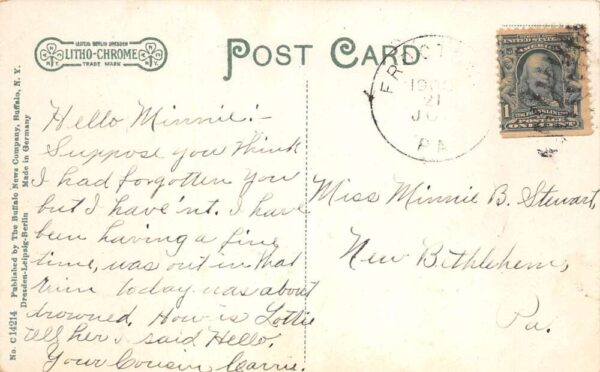 LEIPZIG BERLIN DRESDEN
LITHO-CHROME
TRADE MARK
POST CARD
No. C 14214 Published by The Buffalo News Company, Buffalo, N. Y.
Dresden-Leipzig-Berlin Made in Germany
21
PA
UNITED STATES
AMERICA
1
FRANKLIN
POSTAGE
ONE CENT
Hello Minnie:-
Suppose you think
I had forgotten you
but I have'nt. I have
been having a fine
time, was out in that
today, was about
drowned. How is Lottie
tell her I said Hello.
Your Cousin, Carrie.
Miss Minnie B. Stewart,
New Bethlehem,
Pa.